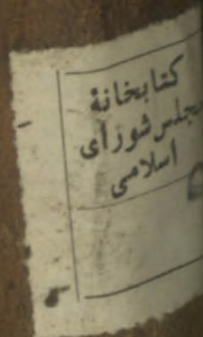 کتابخانهٔ
مجلس شورای
اسلامی